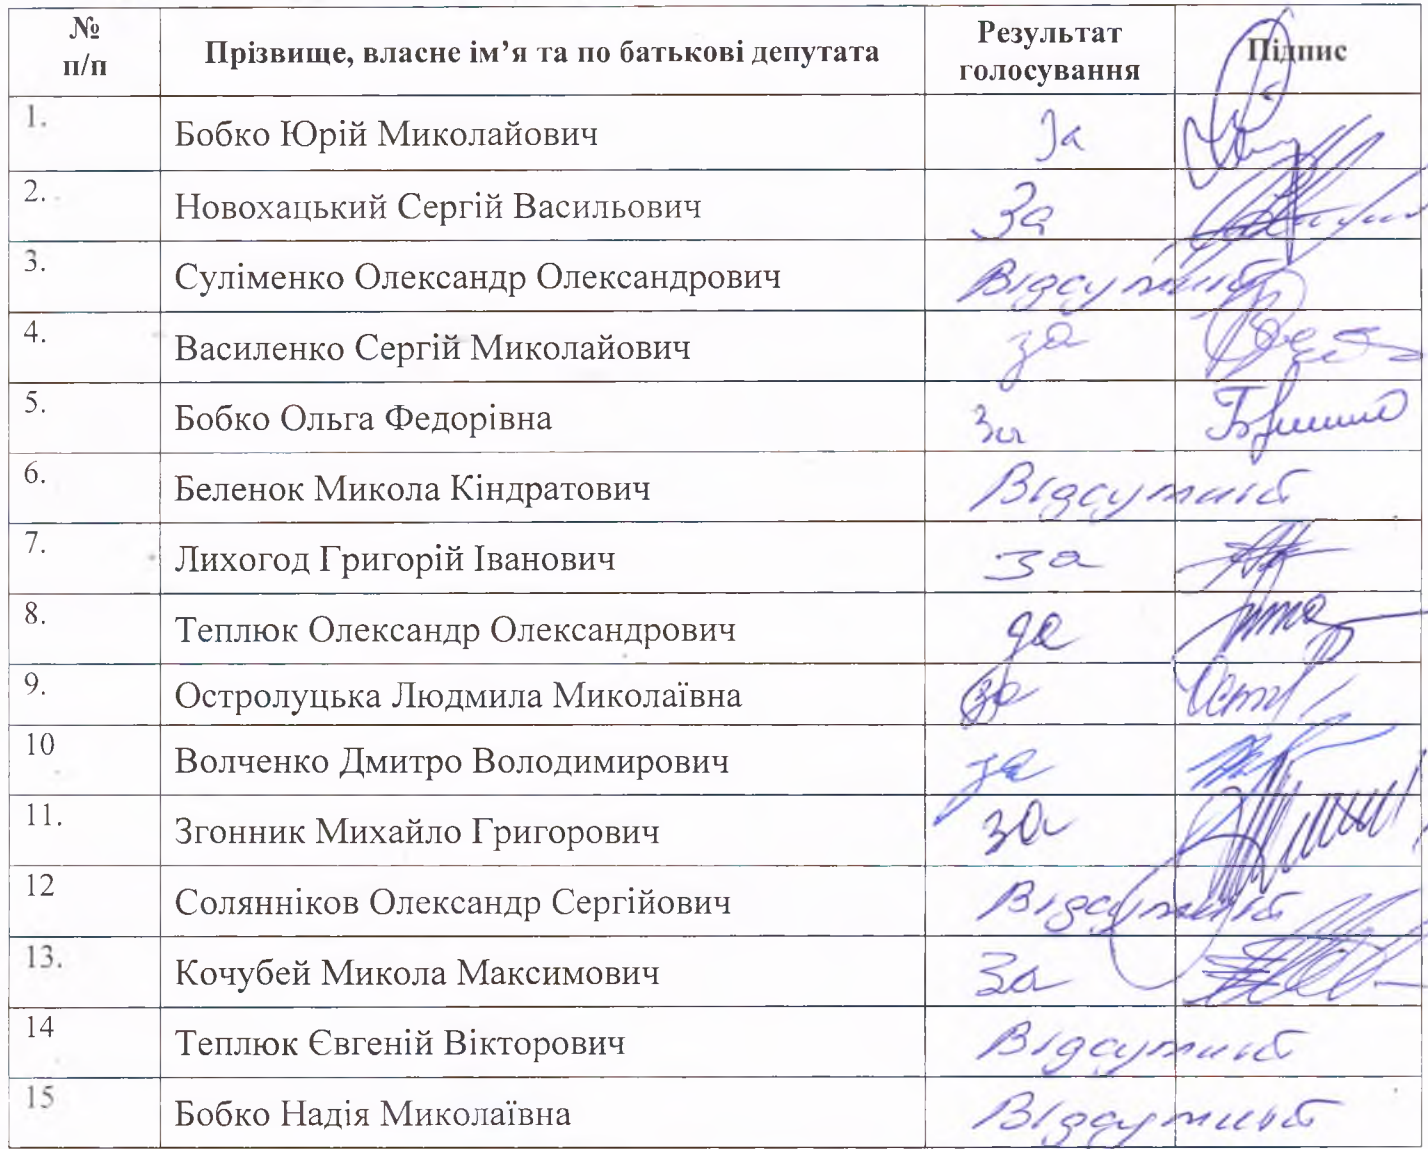 № п/п Прізвище, власне ім’я та по батькові депутата Результат голосування Підпис
1. Бобко Юрій Миколайович За
2. Новохацький Сергій Васильович За
3. Суліменко Олександр Олександрович Відсутній
4. Василенко Сергій Миколайович за
5. Бобко Ольга Федорівна За
6. Беленок Микола Кіндратович Відсутній
7. Лихогод Григорій Іванович за
8. Теплюк Олександр Олександрович за
9. Остролуцька Людмила Миколаївна за
10 Волченко Дмитро Володимирович за
11. Згонник Михайло Григорович за
12 Солянніков Олександр Сергійович Відсутній
13. Кочубей Микола Максимович За
14 Теплюк Євгеній Вікторович Відсутній
15 Бобко Надія Миколаївна Відсутній